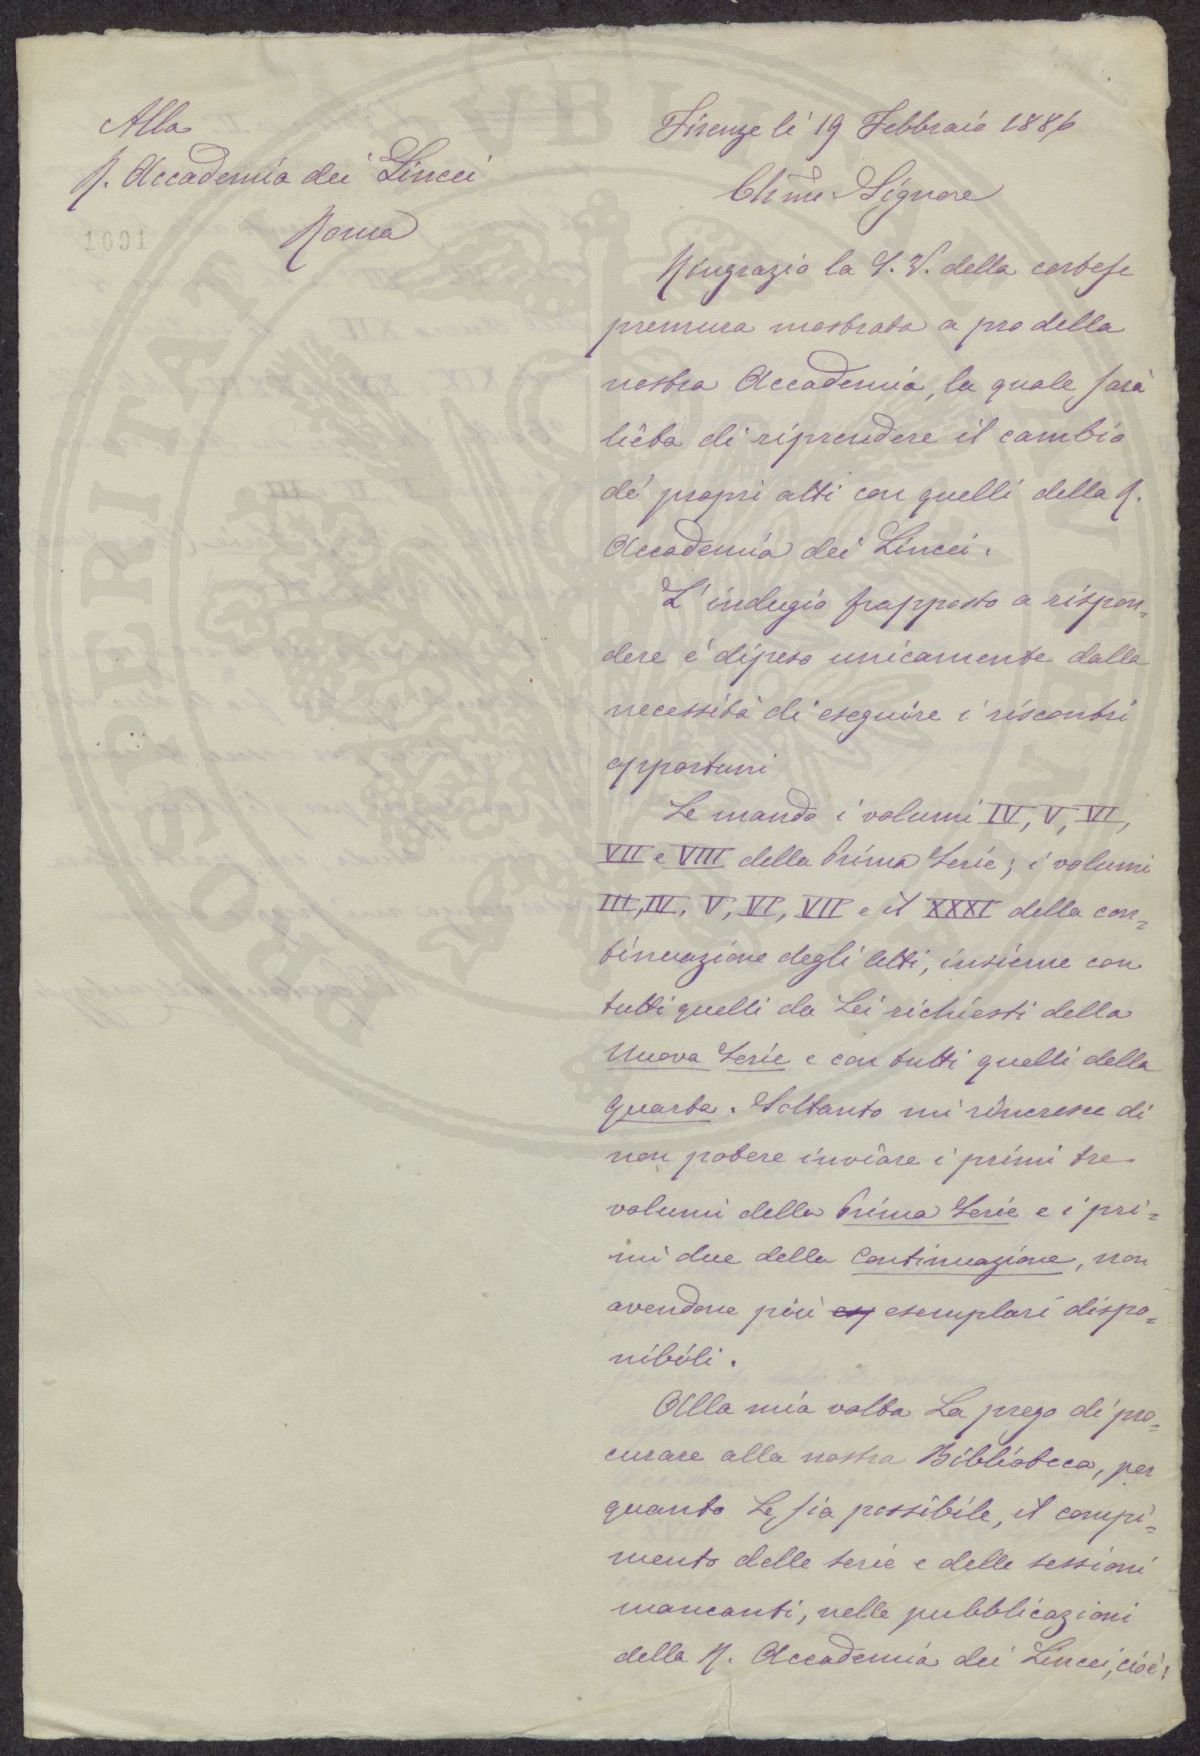 Alla
R. Accademia dei Lincei
Roma
1031
Firenze li 19 Febbraio 1886
Chmo Signore
Ringrazio la S. V. della cortese
premura mostrata a pro della
nostra Accademia, la quale sarà
lieta di riprendere il cambio
de' propri atti con quelli della R.
Accademia dei Lincei.
L'indugio frapposto a rispon=
dere è dipeso unicamente dalla
necessità di eseguire i riscontri
opportuni
Le mando i volumi IV, V, VI,
VII e VIII della Prima Serie; i volumi
III, IV, V, VI, VII e il XXXI della con=
tinuazione degli Atti, insieme con
tutti quelli da Lei richiesti della
Nuova Serie e con tutti quelli della
Quarta. Soltanto mi rincresce di
non potere inviare i primi tre
volumi della Prima Serie e i pri=
mi due della Continuazione, non
avendone più es esemplari dispo=
nibili.
Alla mia volta La prego di pro=
curare alla nostra Biblioteca, per
quanto Le sia possibile, il compi=
mento delle serie e delle sessioni
mancanti, nelle pubblicazioni
della R. Accademia dei Lincei, cioè: